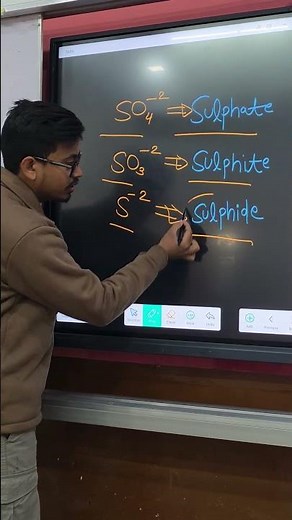 SO₄⁻² ⇒ Sulphate
SO₃⁻² ⇒ Sulphite
S⁻² ⇒ Sulphide